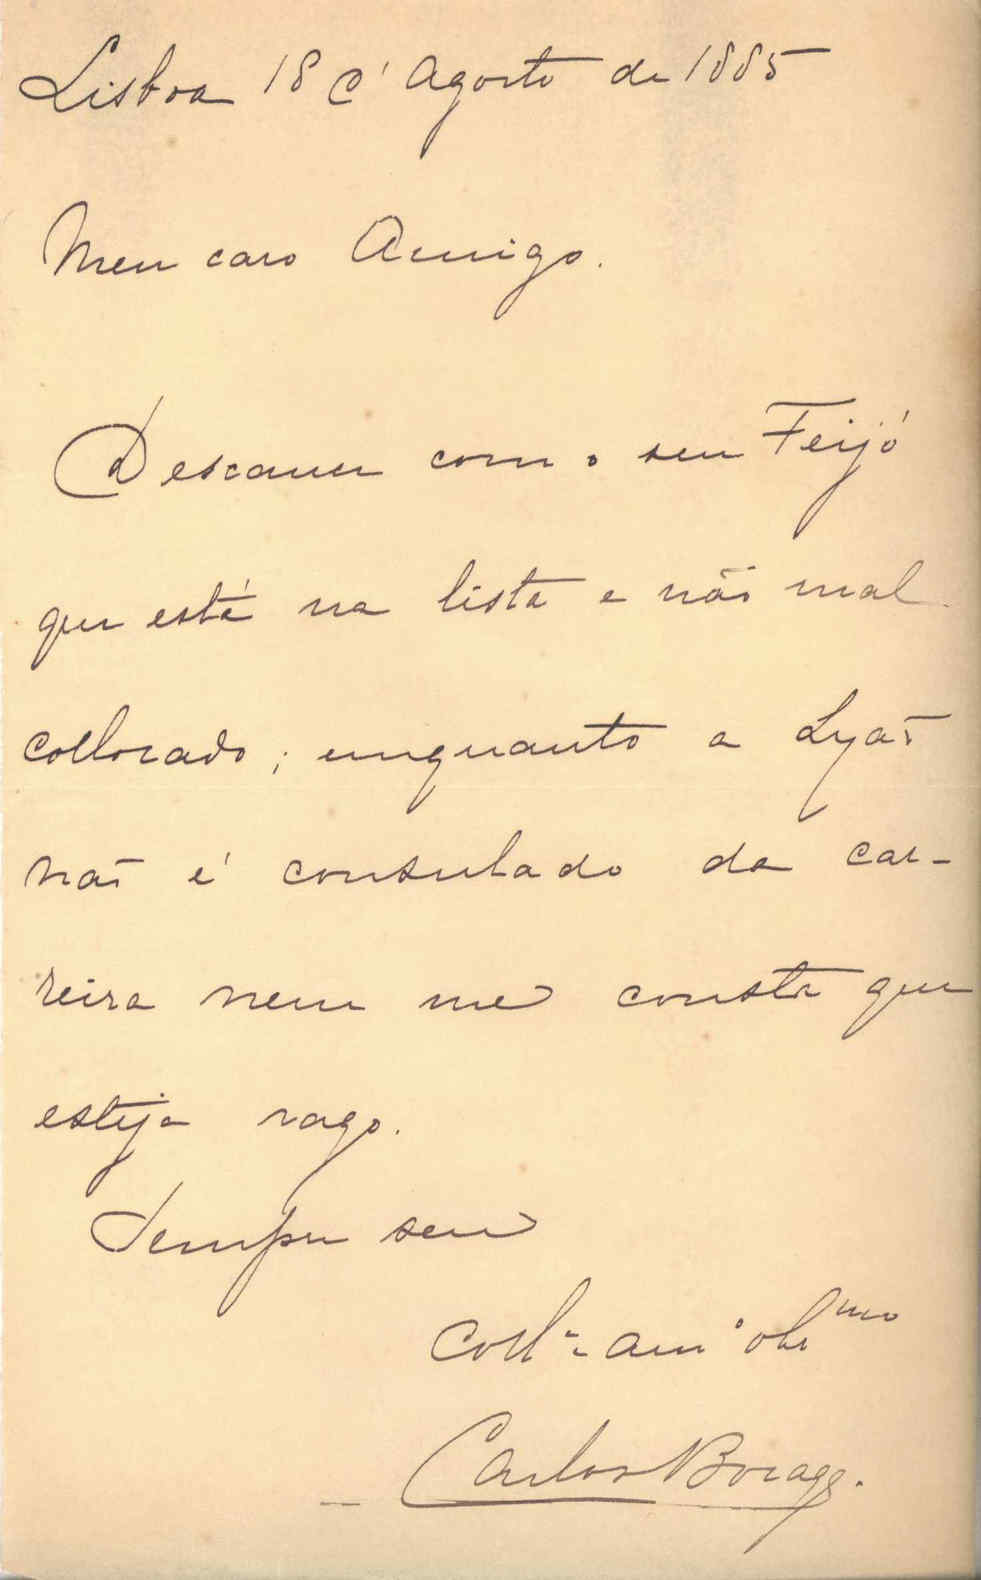 Lisboa 18 d'Agosto de 1885
Meu caro Amigo.
Descance com o seu Feijó
que está na lista e não mal
collocado; emquanto a Lyão
não é consulado de car-
reira nem me consta que
esteja vago.
Sempre seu
Coll.ª am.º obr.mo
Carlos Bocage.